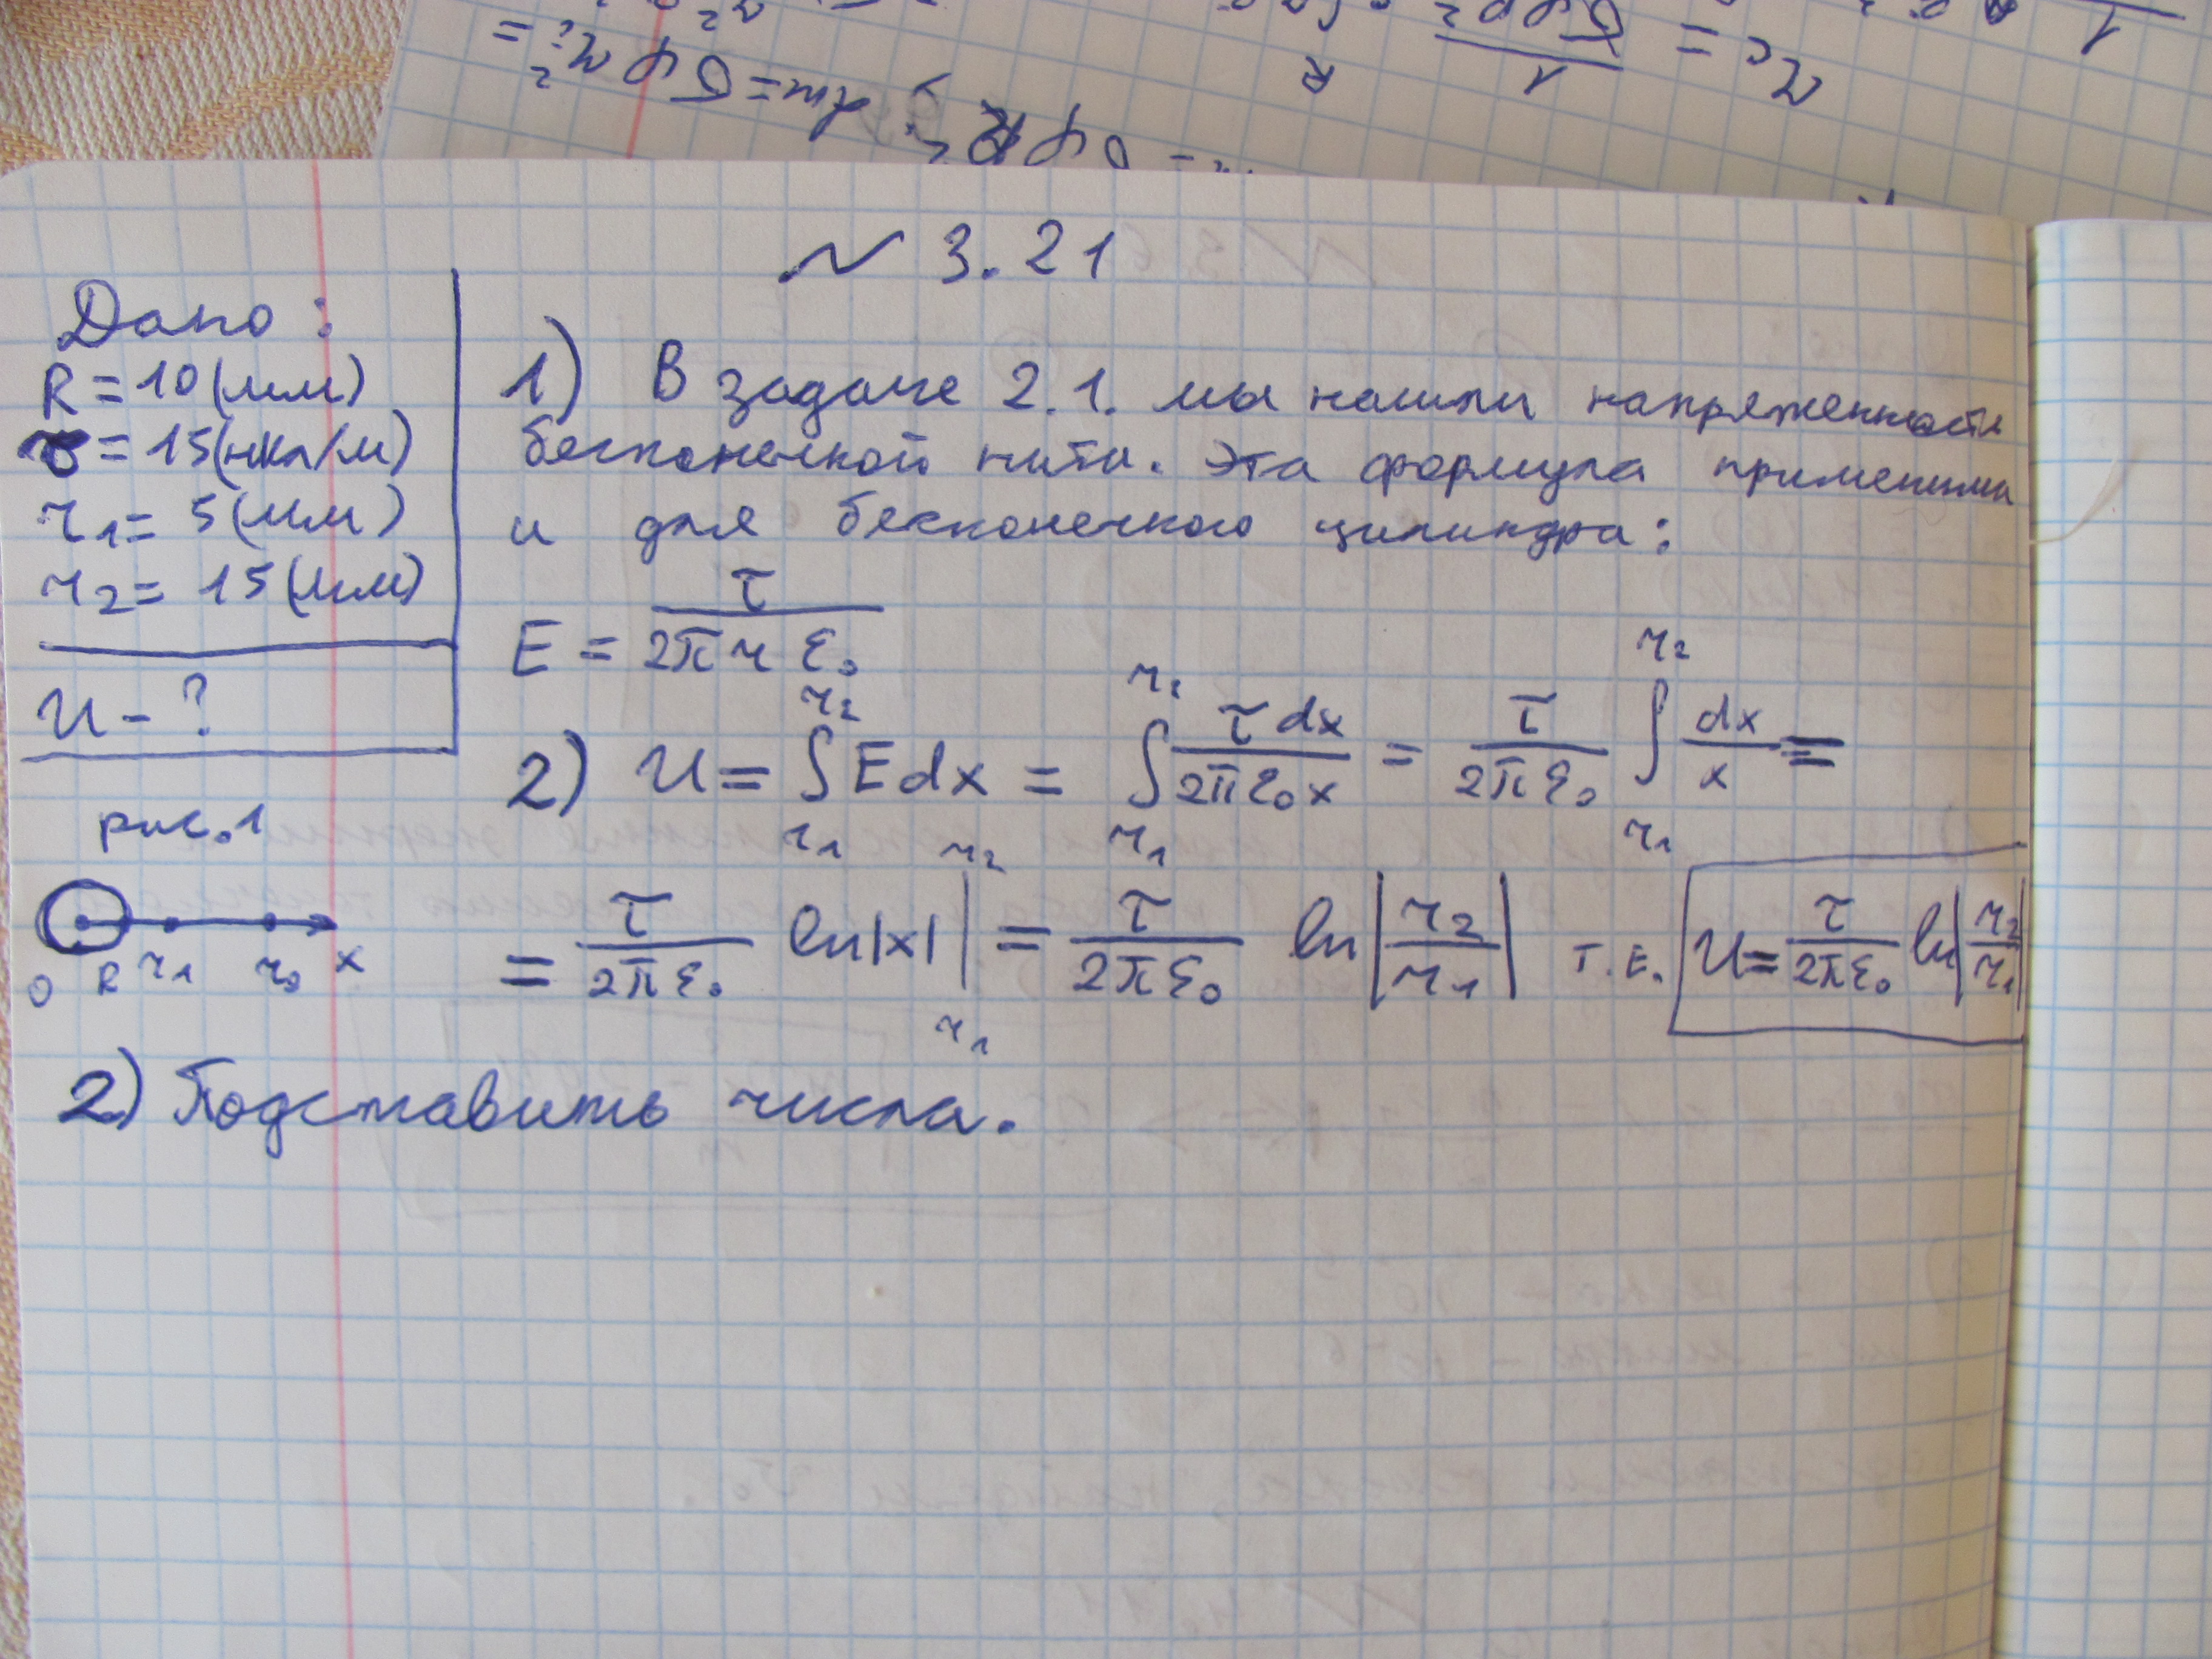 № 3.21
Дано:
R = 10 (мм)
τ = 15 (нкл/м)
r₁ = 5 (мм)
r₂ = 15 (мм)
U - ?
рис. 1
O R r₁ r₂ x
1) В задаче 2.1. мы нашли напряженность
бесконечной нити. Эта формула применима
и для бесконечного цилиндра:
E = τ / 2πrε₀
2) U = ∫_{r₁}^{r₂} E dx = ∫_{r₁}^{r₂} τ dx / 2πε₀x = τ / 2πε₀ ∫_{r₁}^{r₂} dx / x =
= τ / 2πε₀ ln|x| |_{r₁}^{r₂} = τ / 2πε₀ ln|r₂ / r₁| т.е. U = τ / 2πε₀ ln|r₂ / r₁|
2) Подставить числа.